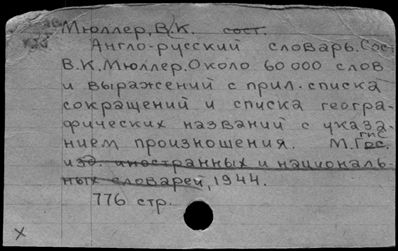 Мюллер, В.К. сост.
Англо-русский словарь. Сост.
В.К. Мюллер. Около 60 000 слов
и выражений с прил. списка
сокращений и списка геогра-
фических названий с указа-
нием произношения. М. Гос.
гис
изд. иностранных и националь-
ных словарей, 1944.
776 стр.
x